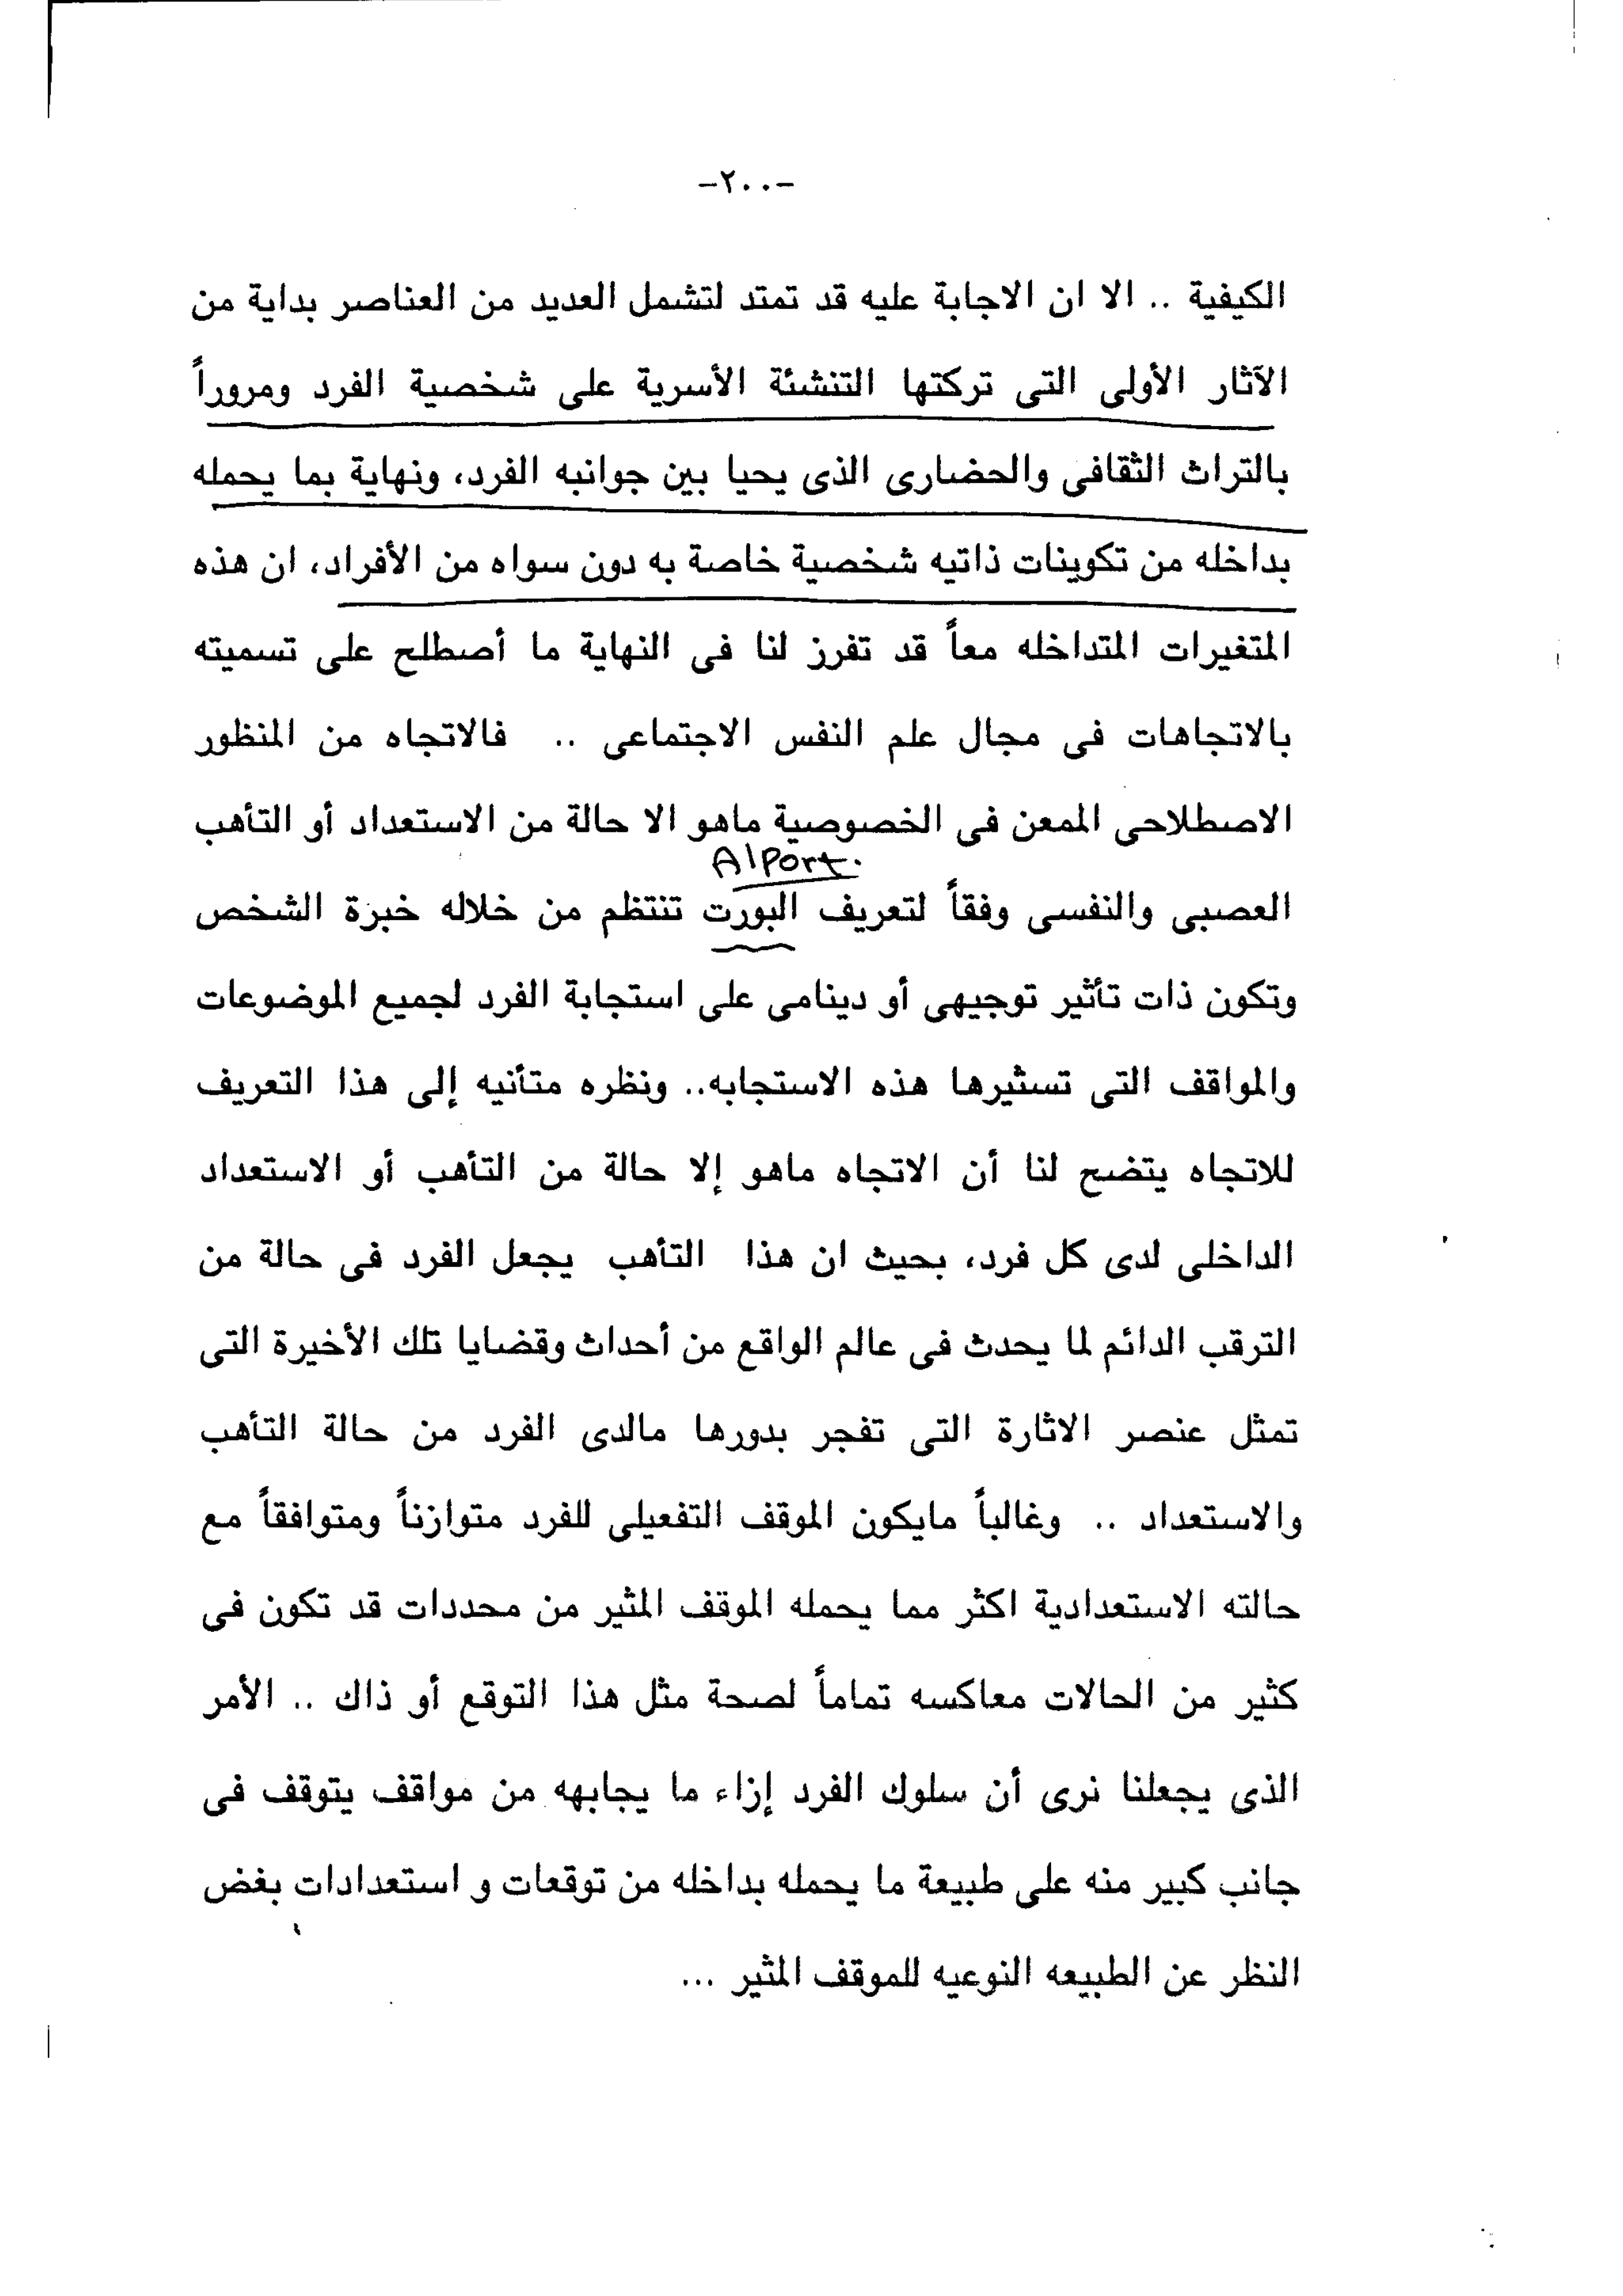 -٢٠٠-
الكيفية .. الا ان الاجابة عليه قد تمتد لتشمل العديد من العناصر بداية من
الآثار الأولى التى تركتها التنشئة الأسرية على شخصية الفرد ومروراً
بالتراث الثقافى والحضارى الذى يحيا بين جوانبه الفرد، ونهاية بما يحمله
بداخله من تكوينات ذاتيه شخصية خاصة به دون سواه من الأفراد، ان هذه
المتغيرات المتداخله معاً قد تفرز لنا فى النهاية ما أصطلح على تسميته
بالاتجاهات فى مجال علم النفس الاجتماعى .. فالاتجاه من المنظور
الاصطلاحى الممعن فى الخصوصية ماهو الا حالة من الاستعداد أو التأهب
Alport.
العصبى والنفسى وفقاً لتعريف البورت تنتظم من خلاله خبرة الشخص
وتكون ذات تأثير توجيهى أو دينامى على استجابة الفرد لجميع الموضوعات
والمواقف التى تستثيرها هذه الاستجابه.. ونظره متأنيه إلى هذا التعريف
للاتجاه يتضح لنا أن الاتجاه ماهو إلا حالة من التأهب أو الاستعداد
الداخلى لدى كل فرد، بحيث ان هذا التأهب يجعل الفرد فى حالة من
الترقب الدائم لما يحدث فى عالم الواقع من أحداث وقضايا تلك الأخيرة التى
تمثل عنصر الاثارة التى تفجر بدورها مالدى الفرد من حالة التأهب
والاستعداد .. وغالباً مايكون الموقف التفعيلى للفرد متوازناً ومتوافقاً مع
حالته الاستعدادية اكثر مما يحمله الموقف المثير من محددات قد تكون فى
كثير من الحالات معاكسه تماماً لصحة مثل هذا التوقع أو ذاك .. الأمر
الذى يجعلنا نرى أن سلوك الفرد إزاء ما يجابهه من مواقف يتوقف فى
جانب كبير منه على طبيعة ما يحمله بداخله من توقعات و استعدادات بغض
النظر عن الطبيعه النوعيه للموقف المثير ...